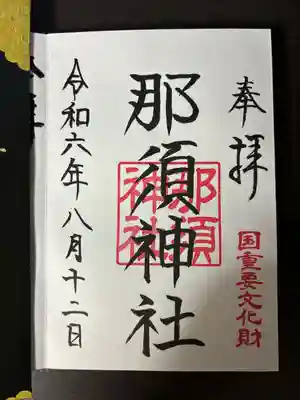 奉拝
国重要文化財
那須神社
那須神社
令和六年八月十二日